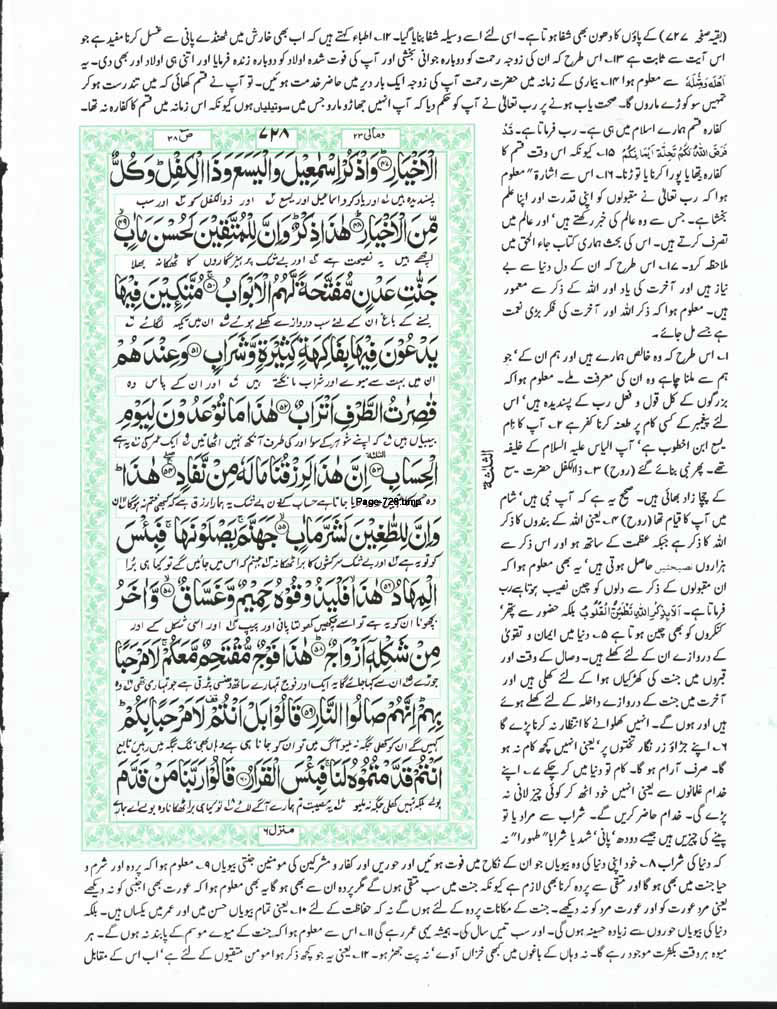 (بقیہ صفحہ ۷۲۷) کے پاؤں کا دھون بھی شفا ہوتا ہے۔ اسی لئے اسے وسیلہ شفا بنایا گیا۔ ۱۲۔ اطباء کہتے ہیں کہ اب بھی خارش میں ٹھنڈے پانی سے غسل کرنا مفید ہے جو
اس آیت سے ثابت ہے ۱۳۔ اس طرح کہ ان کی زوجہ رحمت کو دوبارہ جوانی بخشی اور آپ کی فوت شدہ اولاد کو دوبارہ زندہ فرمایا اور اتنی ہی اولاد اور بھی دی۔ یہ
سے معلوم ہوا ۱۴۔ بیماری کے زمانہ میں حضرت رحمت آپ کی زوجہ ایک بار دیر میں حاضر خدمت ہوئیں۔ تو آپ نے قسم کھائی کہ میں تندرست ہو کر
تمہیں سو کوڑے ماروں گا۔ صحت یاب ہونے پر رب تعالیٰ نے آپ کو حکم دیا کہ آپ انہیں جھاڑو مار دو جس میں سو تیلیاں ہوں کیونکہ اس زمانہ میں قسم کا کفارہ نہ تھا۔
کفارہ قسم ہمارے اسلام میں ہی ہے۔ رب فرماتا ہے۔ قَدْ
فَرَضَ اللّٰهُ لَكُمْ تَحِلَّةَ اَيْمَانِكُمْ ۱۵۔ کیونکہ اس وقت قسم کا
کفارہ نہ تھا یا پورا کرنا یا توڑنا۔ ۱۶۔ اس سے اشارۃ معلوم
ہوا کہ رب تعالیٰ نے مقبولوں کو اپنی قدرت اور اپنا علم
بخشا ہے۔ جس سے وہ عالم کی خبر رکھتے ہیں' اور عالم میں
تصرف کرتے ہیں۔ اس کی بحث ہماری کتاب جاء الحق میں
ملاحظہ کرو۔ ۱۷۔ اس طرح کہ ان کے دل دنیا سے بے
نیاز ہیں اور آخرت کی یاد اور اللہ کے ذکر سے معمور
ہیں۔ معلوم ہوا کہ ذکر اللہ اور آخرت کی فکر بڑی نعمت
ہے جسے مل جائے۔
۱۔ اس طرح کہ وہ خالص ہمارے ہیں اور ہم ان کے' جو
ہم سے ملنا چاہے وہ ان کی معرفت ملے۔ معلوم ہوا کہ
بزرگوں کے کل قول و فعل رب کے پسندیدہ ہیں' اس
لئے پیغمبر کے کسی کام پر طعنہ کرنا کفر ہے ۲۔ آپ کا نام
یسع ابن اخطوب ہے' آپ الیاس علیہ السلام کے خلیفہ
تھے۔ پھر نبی بنائے گئے (روح) ۳۔ ذالکفل حضرت یسع
کے چچا زاد بھائی ہیں۔ صحیح یہ ہے کہ آپ نبی ہیں' شام
میں آپ کا قیام تھا (روح) ۴۔ یعنی اللہ کے بندوں کا ذکر
اللہ کا ذکر ہے جبکہ عظمت کے ساتھ ہو اور اس ذکر سے
ہزاروں نصیحتیں حاصل ہوتی ہیں' یہ بھی معلوم ہوا کہ
ان مقبولوں کے ذکر سے دلوں کو چین نصیب ہوتا ہے رب
فرماتا ہے۔ اَلَا بِذِكْرِ اللّٰهِ تَطْمَئِنُّ الْقُلُوْبُ بلکہ حضور سے پتھر'
کنکروں کو بھی چین ہوتا ہے ۵۔ دنیا میں ایمان و تقویٰ
کے دروازے ان کے لئے کھلے ہیں۔ وصال کے وقت اور
قبروں میں جنت کی کھڑکیاں ہوا کے لئے کھلی ہیں اور
آخرت میں جنت کے دروازے داخلہ کے لئے کھلے ہوئے
ہیں اور ہوں گے۔ انہیں کھلوانے کا انتظار نہ کرنا پڑے گا
۶۔ اپنے جڑاؤ زر نگار تختوں پر' یعنی انہیں کچھ کام نہ ہو
گا۔ صرف آرام ہو گا۔ کام تو دنیا میں کر چکے ۷۔ اپنے
خدام غلمانوں سے یعنی انہیں خود اٹھ کر کوئی چیز لانی نہ
پڑے گی۔ خدام حاضر کریں گے۔ شراب سے مراد یا تو
پینے کی چیزیں ہیں جیسے دودھ' پانی' شہد یا شرابا طہورا نہ
الثلثة
ص ۳۸
۷۲۸
ومالی ۲۳
الْاَخْيَارِ ﴿۴۷﴾ وَاذْكُرْ اِسْمٰعِيْلَ وَالْيَسَعَ وَذَا الْكِفْلِ ؕ وَكُلٌّ
پسندیدہ ہیں اور یاد کرو اسماعیل اور یسع اور ذوالکفل کو اور سب
مِّنَ الْاَخْيَارِ ﴿۴۸﴾ هٰذَا ذِكْرٌ ؕ وَاِنَّ لِلْمُتَّقِيْنَ لَحُسْنَ مَاٰبٍ ﴿۴۹﴾
اچھے ہیں یہ نصیحت ہے اور بے شک پرہیزگاروں کا ٹھکانہ بھلا
جَنّٰتِ عَدْنٍ مُّفَتَّحَةً لَّهُمُ الْاَبْوَابُ ﴿۵۰﴾ مُتَّكِـِٕيْنَ فِيْهَا
بسنے کے باغ ان کے لئے سب دروازے کھلے ہوئے ان میں تکیہ لگائے
يَدْعُوْنَ فِيْهَا بِفَاكِهَةٍ كَثِيْرَةٍ وَّشَرَابٍ ﴿۵۱﴾ وَعِنْدَهُمْ
ان میں بہت سے میوے اور شراب مانگتے ہیں اور ان کے پاس وہ
قٰصِرٰتُ الطَّرْفِ اَتْرَابٌ ﴿۵۲﴾ هٰذَا مَا تُوْعَدُوْنَ لِيَوْمِ
بیبیاں ہیں کہ اپنے شوہر کے سوا اور کی طرف آنکھ نہیں اٹھاتیں ایک عمر کی یہ ہے
الْحِسَابِ ﴿۵۳﴾ اِنَّ هٰذَا لَرِزْقُنَا مَا لَهٗ مِنْ نَّفَادٍ ﴿۵۴﴾ هٰذَا ؕ
Page-728.bmp
وَاِنَّ لِلطّٰغِيْنَ لَشَرَّ مَاٰبٍ ﴿۵۵﴾ جَهَنَّمَ ۚ يَصْلَوْنَهَا ۚ فَبِئْسَ
کو تو یہ ہے اور بے شک سرکشوں کا برا ٹھکانا جہنم کہ اس میں جائیں گے تو کیا ہی برا
الْمِهَادُ ﴿۵۶﴾ هٰذَا ۙ فَلْيَذُوْقُوْهُ حَمِيْمٌ وَّغَسَّاقٌ ﴿۵۷﴾ وَّاٰخَرُ
بچھونا ان کو یہ ہے تو اسے چکھیں کھولتا پانی اور پیپ اور اسی شکل کے اور
مِنْ شَكْلِهٖٓ اَزْوَاجٌ ﴿۵۸﴾ هٰذَا فَوْجٌ مُّقْتَحِمٌ مَّعَكُمْ ۚ لَا مَرْحَبًا
جوڑے ان سے کہا جائے گا یہ ایک اور فوج تمہارے ساتھ دھنسی پڑتی ہے جو تمہاری تھی وہ
بِهِمْ ؕ اِنَّهُمْ صَالُوا النَّارِ ﴿۵۹﴾ قَالُوْا بَلْ اَنْتُمْ ۫ لَا مَرْحَبًا بِكُمْ ؕ
کہیں گے ان کو کھلی جگہ نہ ملیو آگ میں تو ان کو جانا ہی ہے وہاں بھی تنگ جگہ میں رہیں تابع
اَنْتُمْ قَدَّمْتُمُوْهُ لَنَا ۚ فَبِئْسَ الْقَرَارُ ﴿۶۰﴾ قَالُوْا رَبَّنَا مَنْ قَدَّمَ
بولے بلکہ تمہیں کھلی جگہ نہ ملیو یہ مصیبت تم ہمارے آگے لائے تو کیا ہی برا ٹھکانا وہ بولے اے ہمارے
منزل ۶
کہ دنیا کی شراب ۸۔ خود اپنی دنیا کی وہ بیویاں جو ان کے نکاح میں فوت ہوئیں اور حوریں اور کفار و مشرکین کی مومنین جنتی بیویاں ۹۔ معلوم ہوا کہ پردہ اور شرم و
حیا جنت میں بھی ہو گا اور متقی سے پردہ کرنا بھی لازم ہے کیونکہ جنت میں سب متقی ہوں گے مگر پردہ ان سے بھی ہو گا یہ بھی معلوم ہوا کہ عورت بھی اجنبی کو نہ دیکھے
یعنی مرد عورت کو اور عورت مرد کو نہ دیکھے۔ جنت کے مکانات پردہ کے لئے ہوں گے نہ کہ حفاظت کے لئے ۱۰۔ یعنی تمام بیویاں حسن میں اور عمر میں یکساں ہیں۔ بلکہ
دنیا کی بیویاں حوروں سے زیادہ حسینہ ہوں گی۔ اور سب تیس سال کی۔ ہمیشہ یہی عمر رہے گی ۱۱۔ اس سے معلوم ہوا کہ جنت کے میوے موسم کے پابند نہ ہوں گے۔ ہر
میوہ ہر وقت بکثرت موجود رہے گا۔ نہ وہاں کے باغوں میں کبھی خزاں آوے' نہ پت جھڑ ہو۔ ۱۲۔ یعنی یہ جو کچھ ذکر ہوا مومن متقیوں کے لئے ہے' اب اس کے مقابل